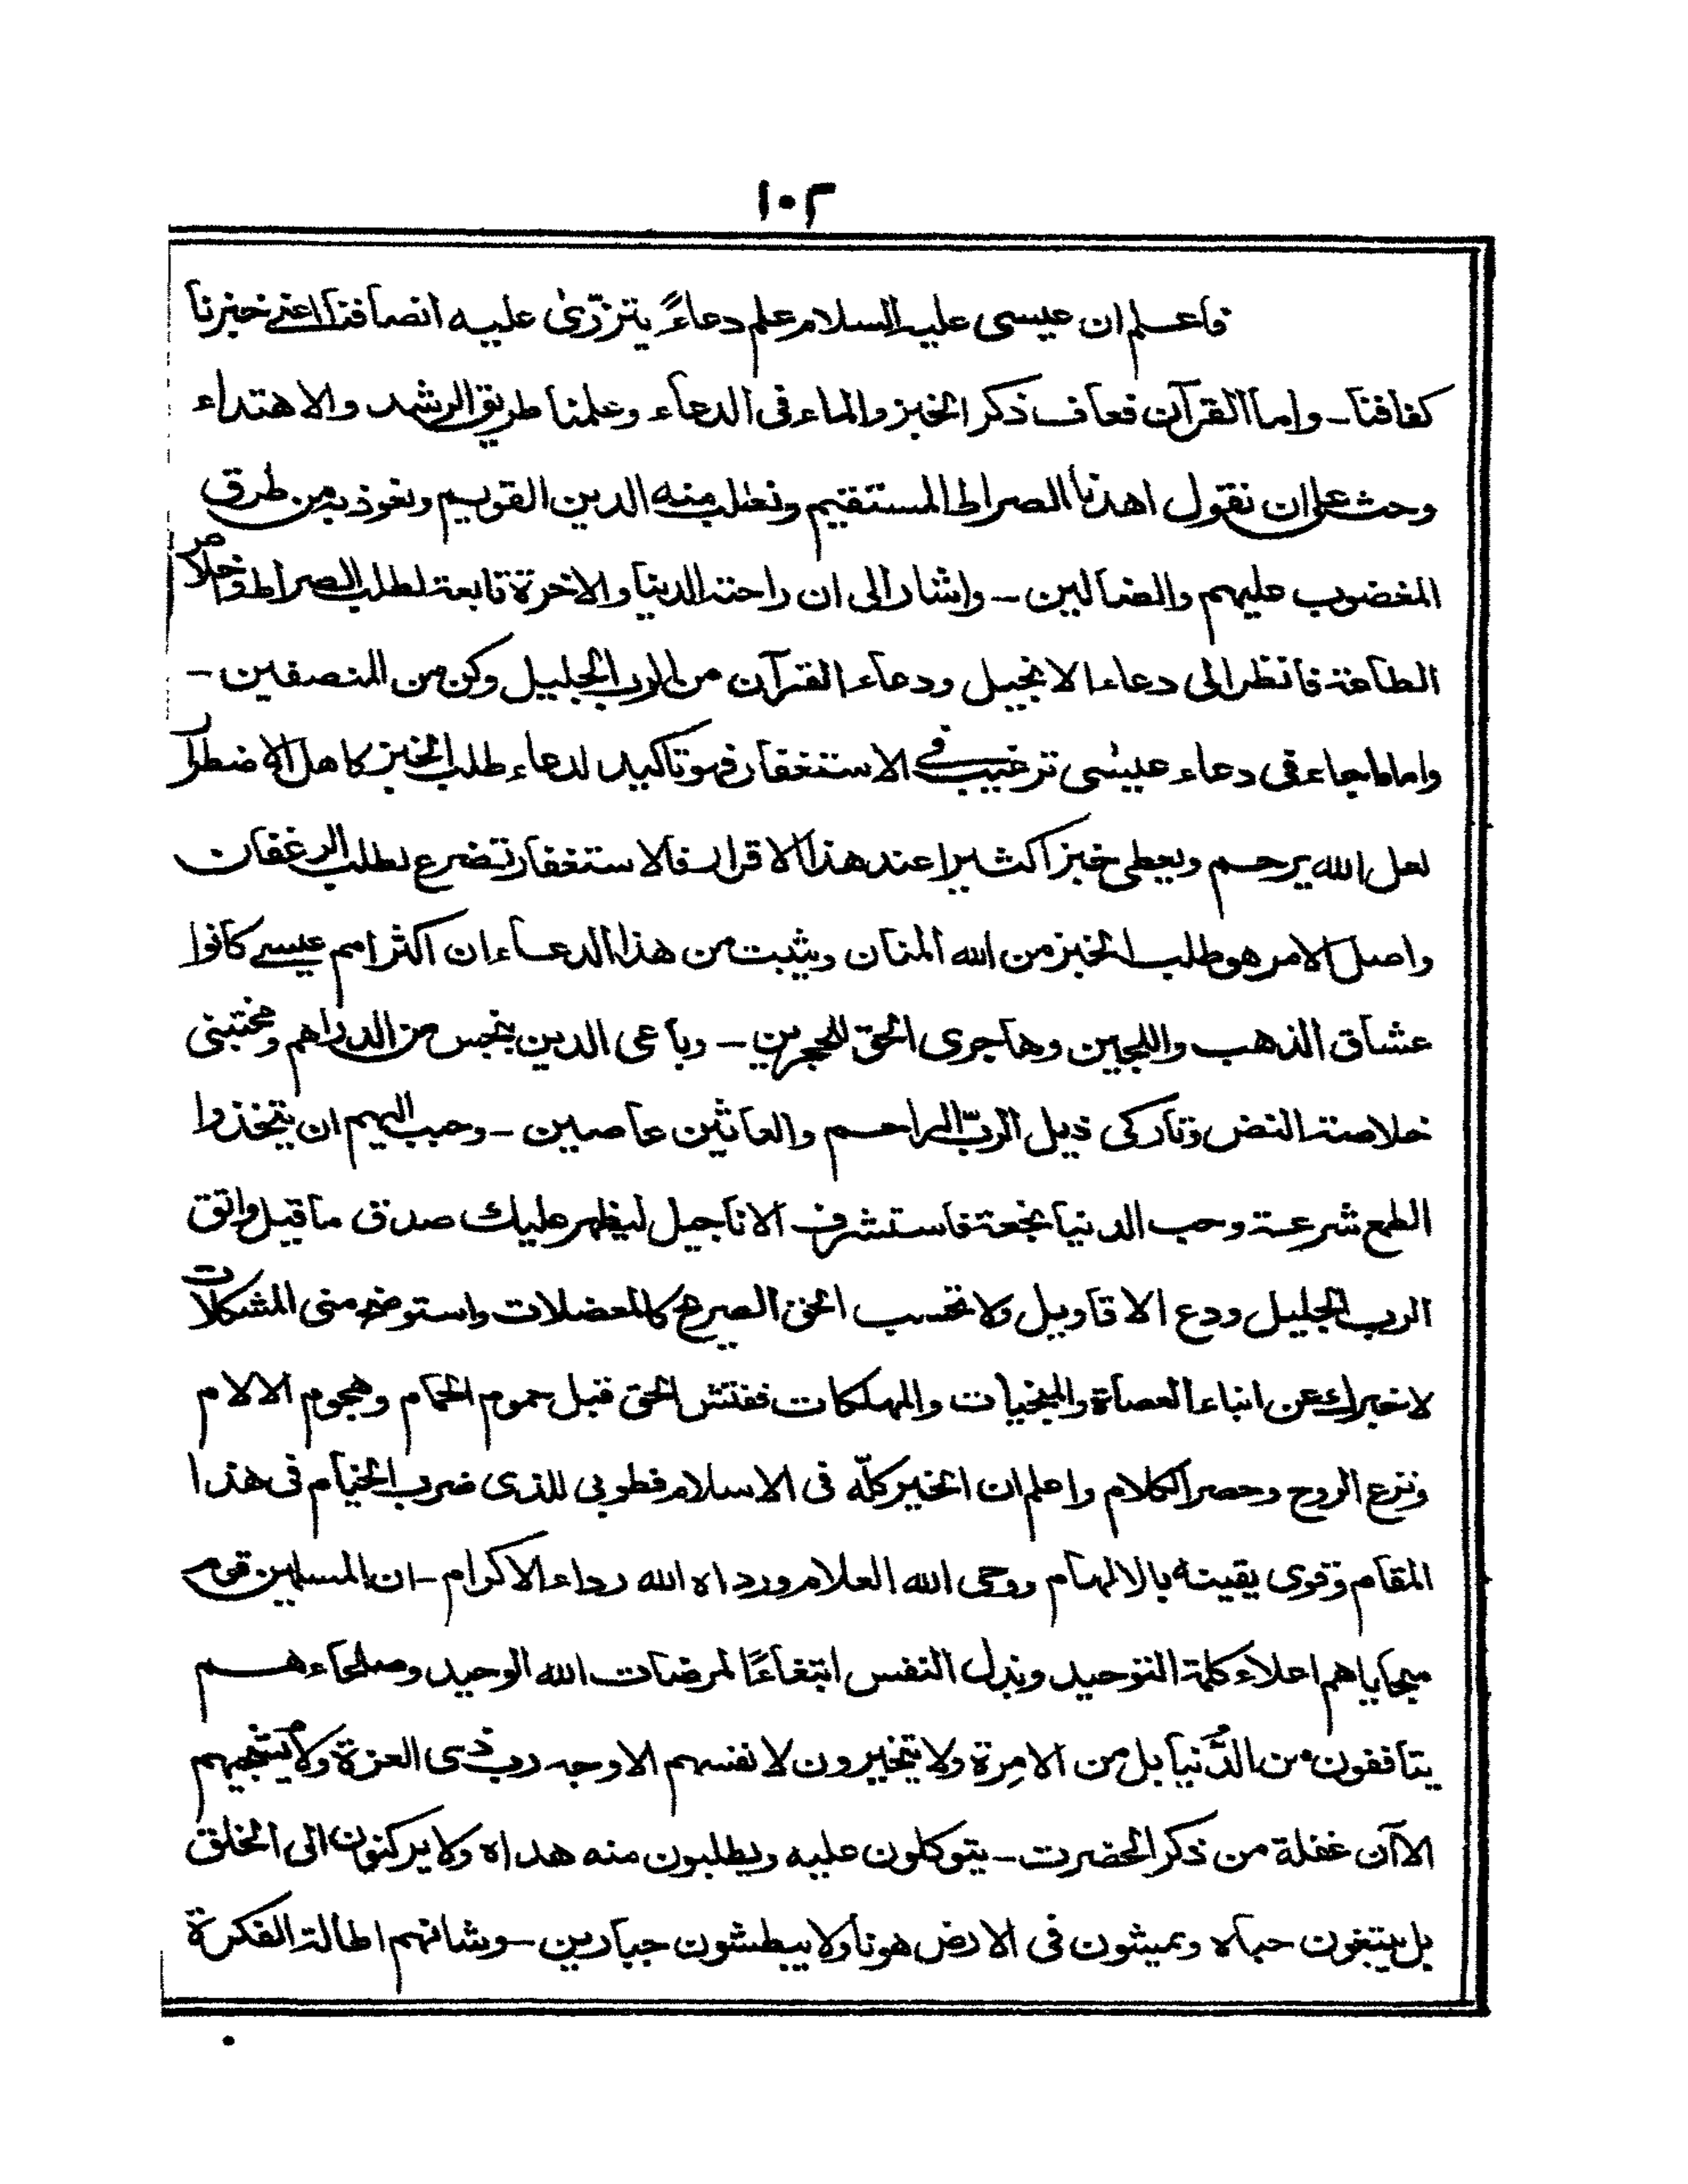 ١٠٢
فاعلم ان عيسى عليه السلام علم دعاءً يتزرّى عليه انصافنا اعنے خبزنا
كفافنا ـ واما القرآن فعاف ذكر الخبز والماء فى الدعاء وعلمنا طريق الرشد والاهتداء
وحث على ان نقول اهدنا الصراط المستقيم ونطلب منه الدين القويم ونعوذ به من طرق
المغضوب عليهم والضالين ـ واشار الى ان راحة الدنيا والاخرة تابعة لطلب الصراط واخلاص
الطاعة فانظر الى دعاء الانجيل ودعاء القرآن من الرب الجليل وكن من المنصفين ـ
واما ما جاء فى دعاء عيسٰى ترغيب فے الاستغفار فهو تاكيد لدعاء طلب الخبز كاهل الاضطرار
لعل الله يرحم ويعطى خبزا كثيرا عند هذا الاقرار فالاستغفار تضرع لطلب الرغفان
واصل الامر هو طلب الخبز من الله المنان ويثبت من هذا الدعاء ان اكثر امم عيسے كانوا
عشاق الذهب واللجين وهاجرى الحق للحجرين ـ وباعى الدين ببخس من الدراهم ومختبنى
خلاصة النض وتاركى ذيل الربّ الراحم والعاثين عاصين ـ وحبب اليهم ان يتخذوا
الطمع شرعة وحب الدنيا نجعة فاستشرف الاناجيل ليظهر عليك صدق ما قيل واتق
الرب الجليل ودع الاقاويل ولا تحسب الحق الصريح كالمعضلات واستوضح منى المشكلات
لاخبرك عن انباء العصاة والمنجيات والمهلكات ففتش الحق قبل حموم الحمام وهجوم الالام
ونزع الروح وحصر الكلام واعلم ان الخير كلّه فى الاسلام فطوبى للذى ضرب الخيام فى هذا
المقام وقوى يقينه بالالهام ووحى الله العلام ورداه الله رداء الاكرام ـ ان المسلمين قوم
سجاياهم اعلاء كلمة التوحيد وبذل النفس ابتغاءًا لمرضات الله الوحيد وصلحاءهم
يتأففون من الدُّنيا بل من الامِرة ولا يتخيرون لانفسهم الا وجه رب ذى العزة ولا يشجيهم
الا آن غفلة من ذكر الحضرت ـ يتوكلون عليه ويطلبون منه هداه ولا يركنون الى الخلق
بل يبتغون حباه ويمشون فى الارض هونا ولا يبطشون جبارين ـ وشانهم اطالة الفكرة